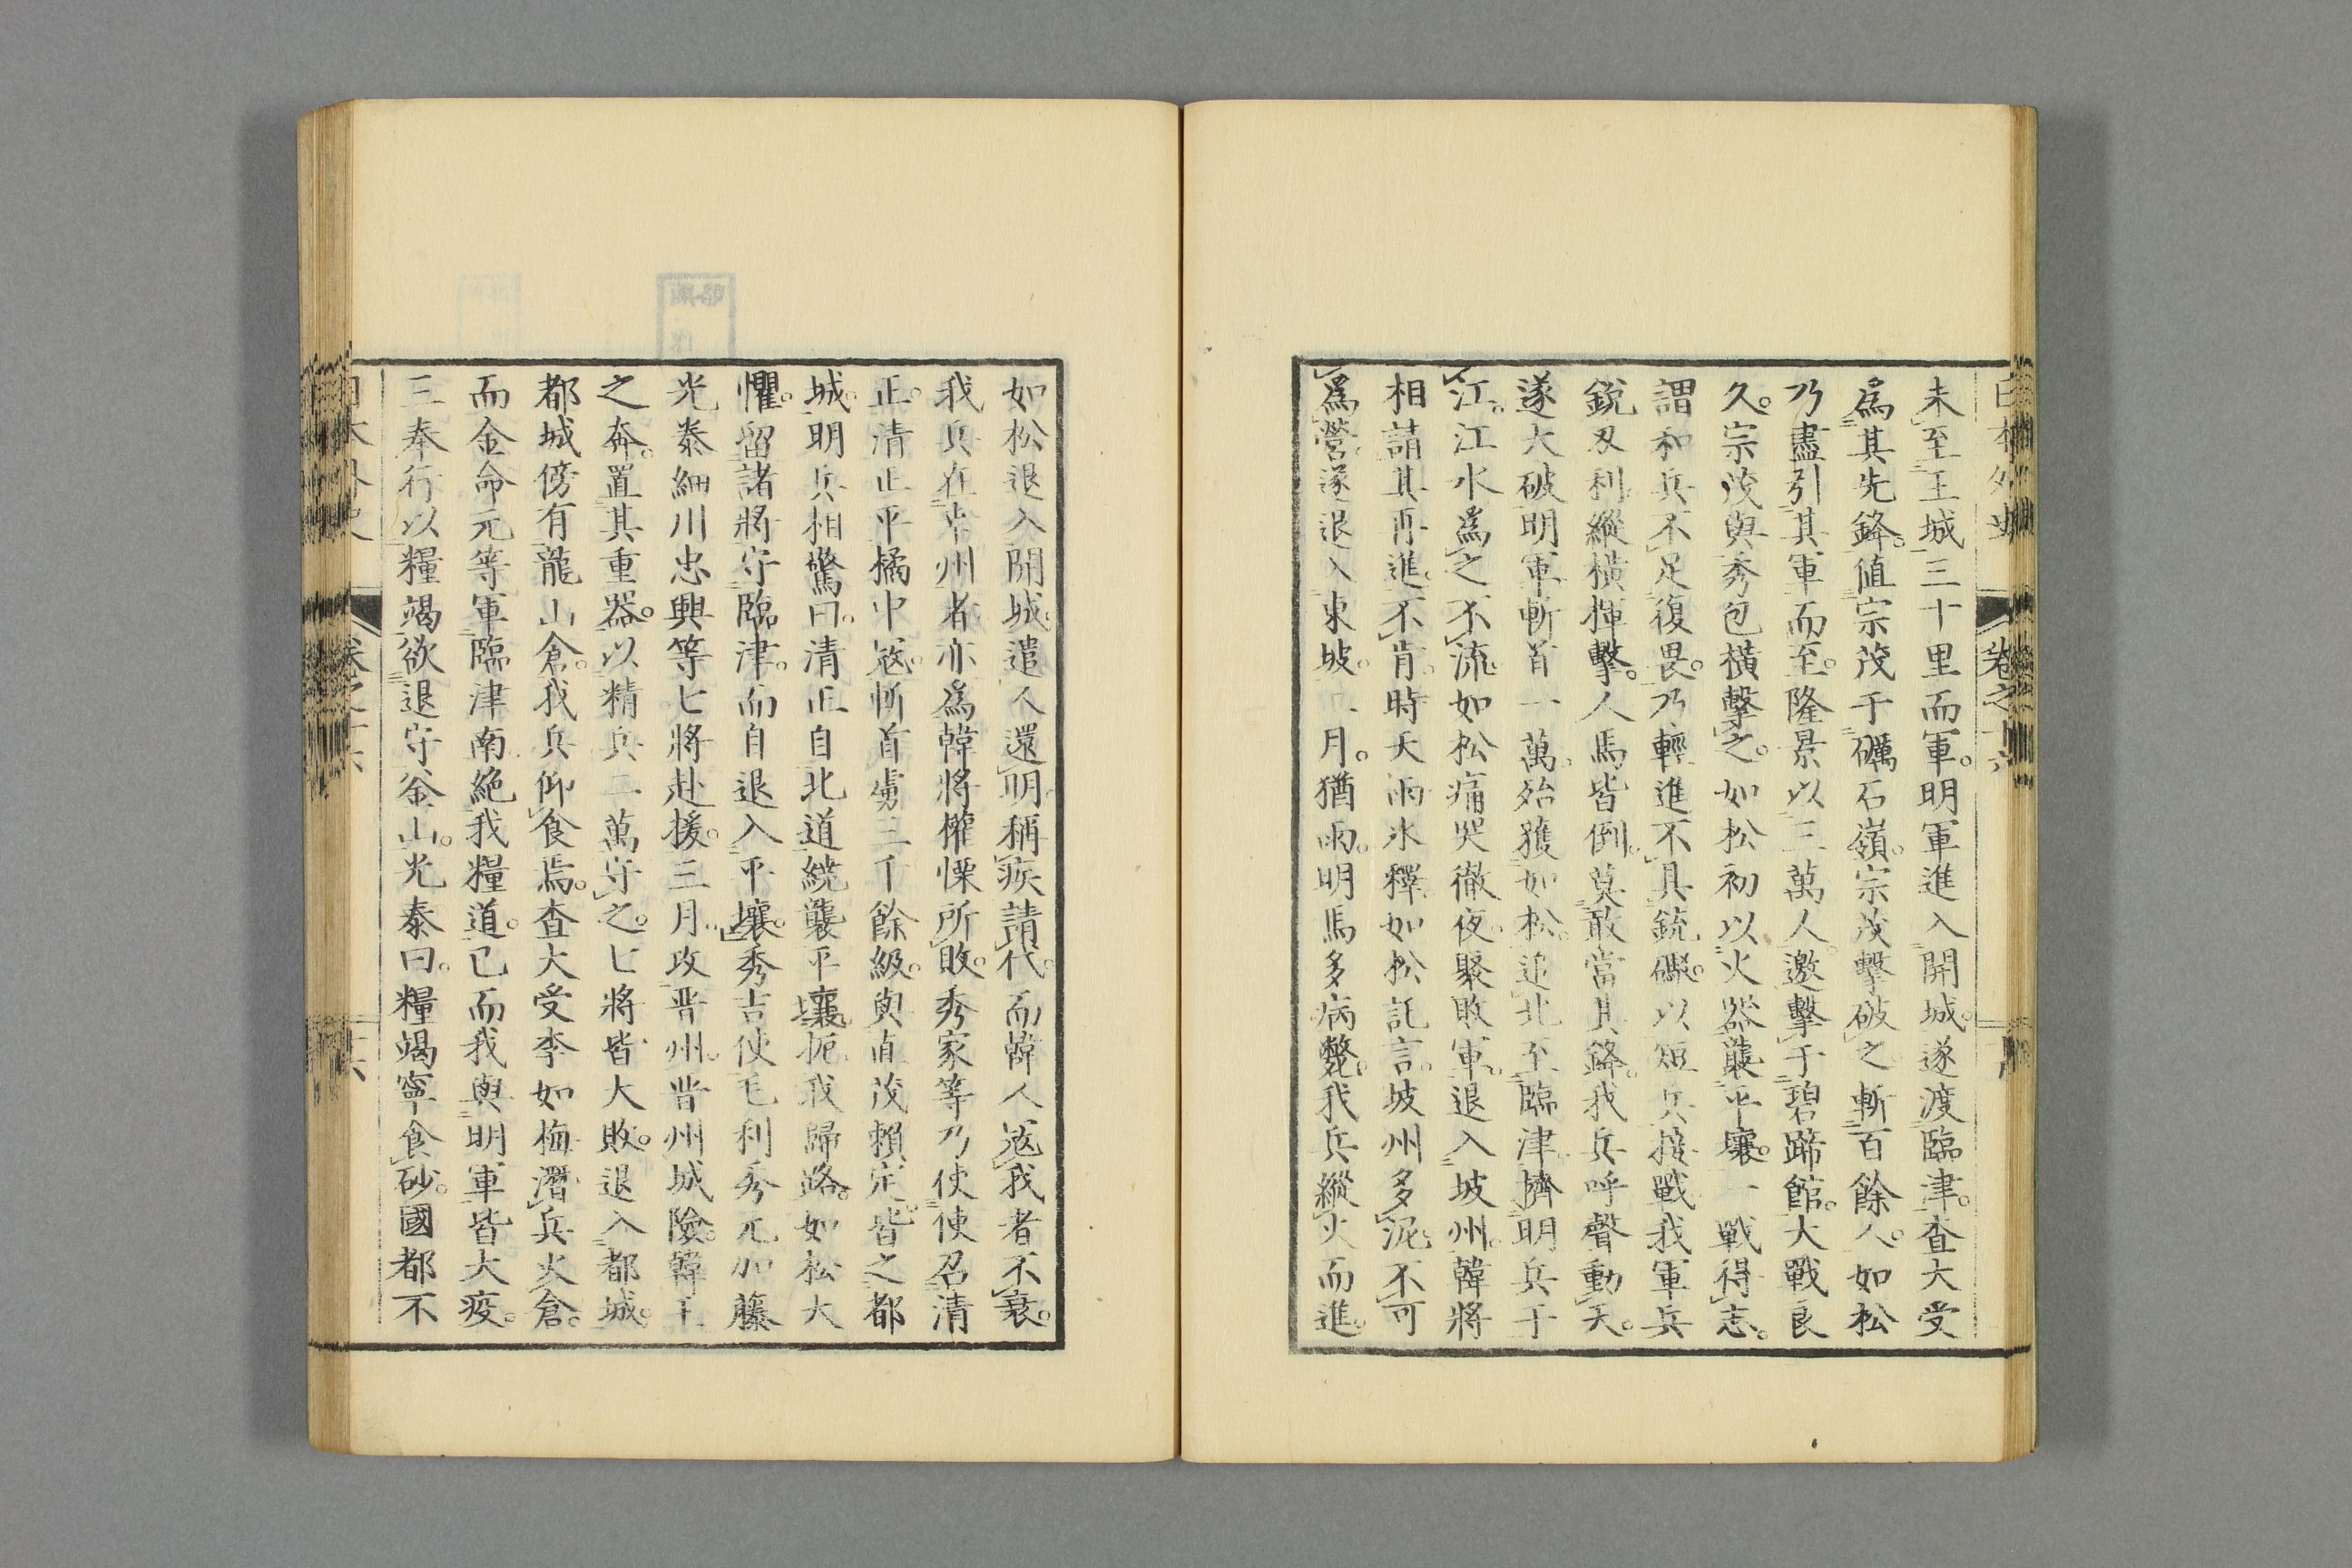 日本外史 卷之十六
未至王城三十里而軍。明軍進入開城。遂渡臨津。査大受
爲其先鋒。値宗茂于礪石嶺。宗茂擊破之斬百餘人。如松
乃盡引其軍而至。隆景以三萬人邀擊于碧蹄館。大戰良
久。宗茂與秀包橫擊之。如松初以火器襲平壤。一戰得志。
謂和兵不足復畏。乃輕進不具銃礮。以短兵接戰。我軍兵
銳刄利。縱橫揮擊。人馬皆倒。莫敢當其鋒。我兵呼聲動天。
遂大破明軍。斬首一萬。殆獲如松。追北至臨津。擠明兵于
江。江水爲之不流。如松痛哭徹夜。聚敗軍。退入坡州。韓將
相請其再進。不肯。時天雨氷釋。如松託言。坡州多泥。不可
爲營。遂退入東坡。二月。猶雨。明馬多病斃。我兵縱火而進。
如松退入開城。遣人還明。稱疾請代。而韓人寇我者不衰。
我兵在幸州者亦爲韓將權慄所敗。秀家等乃使使召清
正。清正平橘中寇。斬首虜三千餘級。與直茂賴定。皆之都
城。明兵相驚曰。清正自北道繞襲平壤。扼我歸路。如松大
懼。留諸將守臨津。而自退入平壤。秀吉使毛利秀元加藤
光泰細川忠興等七將赴援。三月攻晋州。晋州城險。韓王
之奔。置其重器。以精兵二萬守之。七將皆大敗。退入都城。
都城傍有龍山倉。我兵仰食焉。査大受李如梅潛兵火倉。
而金命元等軍臨津南絶我糧道。已而我與明軍皆大疫。
三奉行以糧竭欲退守釡山。光泰曰。糧竭寧食砂。國都不
日本外史 卷之十六 十六